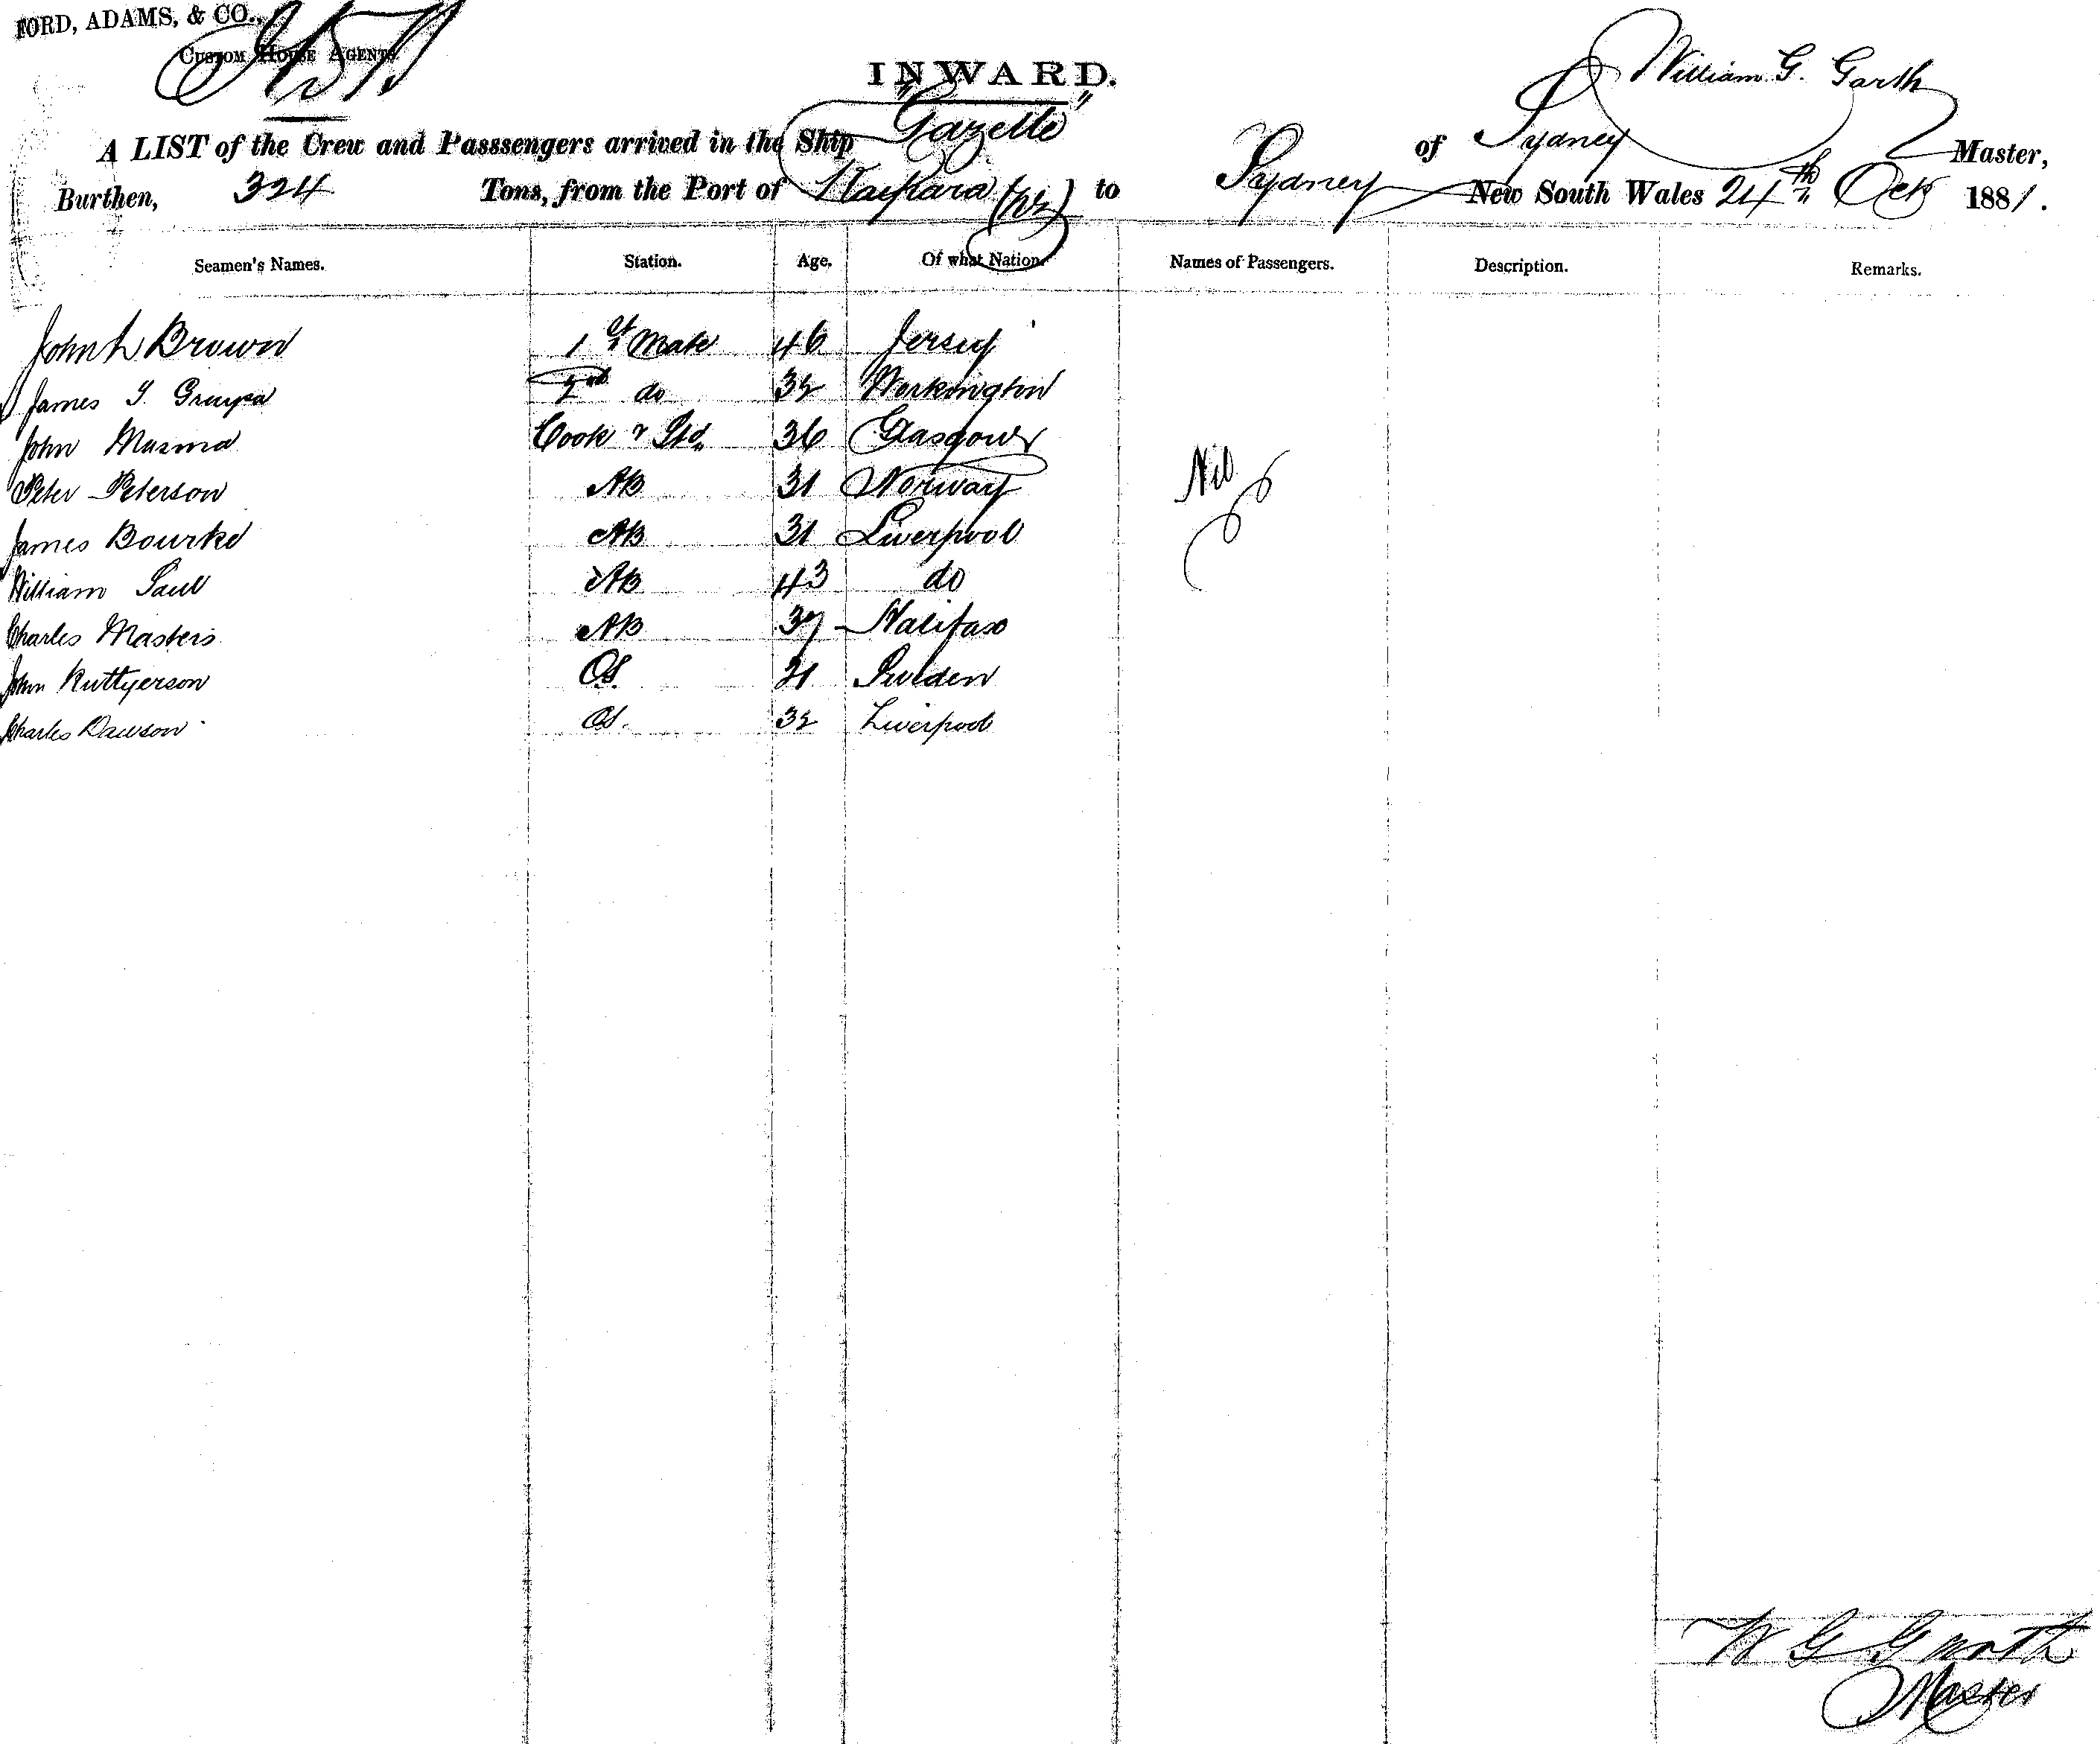 FORD, ADAMS, & CO.,
CUSTOM HOUSE AGENTS
INWARD.
William G. Garth
A LIST of the Crew and Passsengers arrived in the Ship "Gazelle" of Sydney Master,
Burthen, 324 Tons, from the Port of Kaipara (NZ) to Sydney New South Wales 24th Oct 1881.
Seamen's Names. Station. Age. Of what Nation. Names of Passengers. Description. Remarks.
John L Brown 1st Mate 46 Jersey
James T. 2nd do 32 Workington
John Cook & Std. 36 Glasgow
Peter Peterson AB 31 Norway Nil
James Bourke AB 31 Liverpool
William Saul AB 43 do
Charles Masters AB 37 Halifax
John Ruttyerson OS. 21 Sweden
Charles Dawson OS. 32 Liverpool
W G Garth
Master